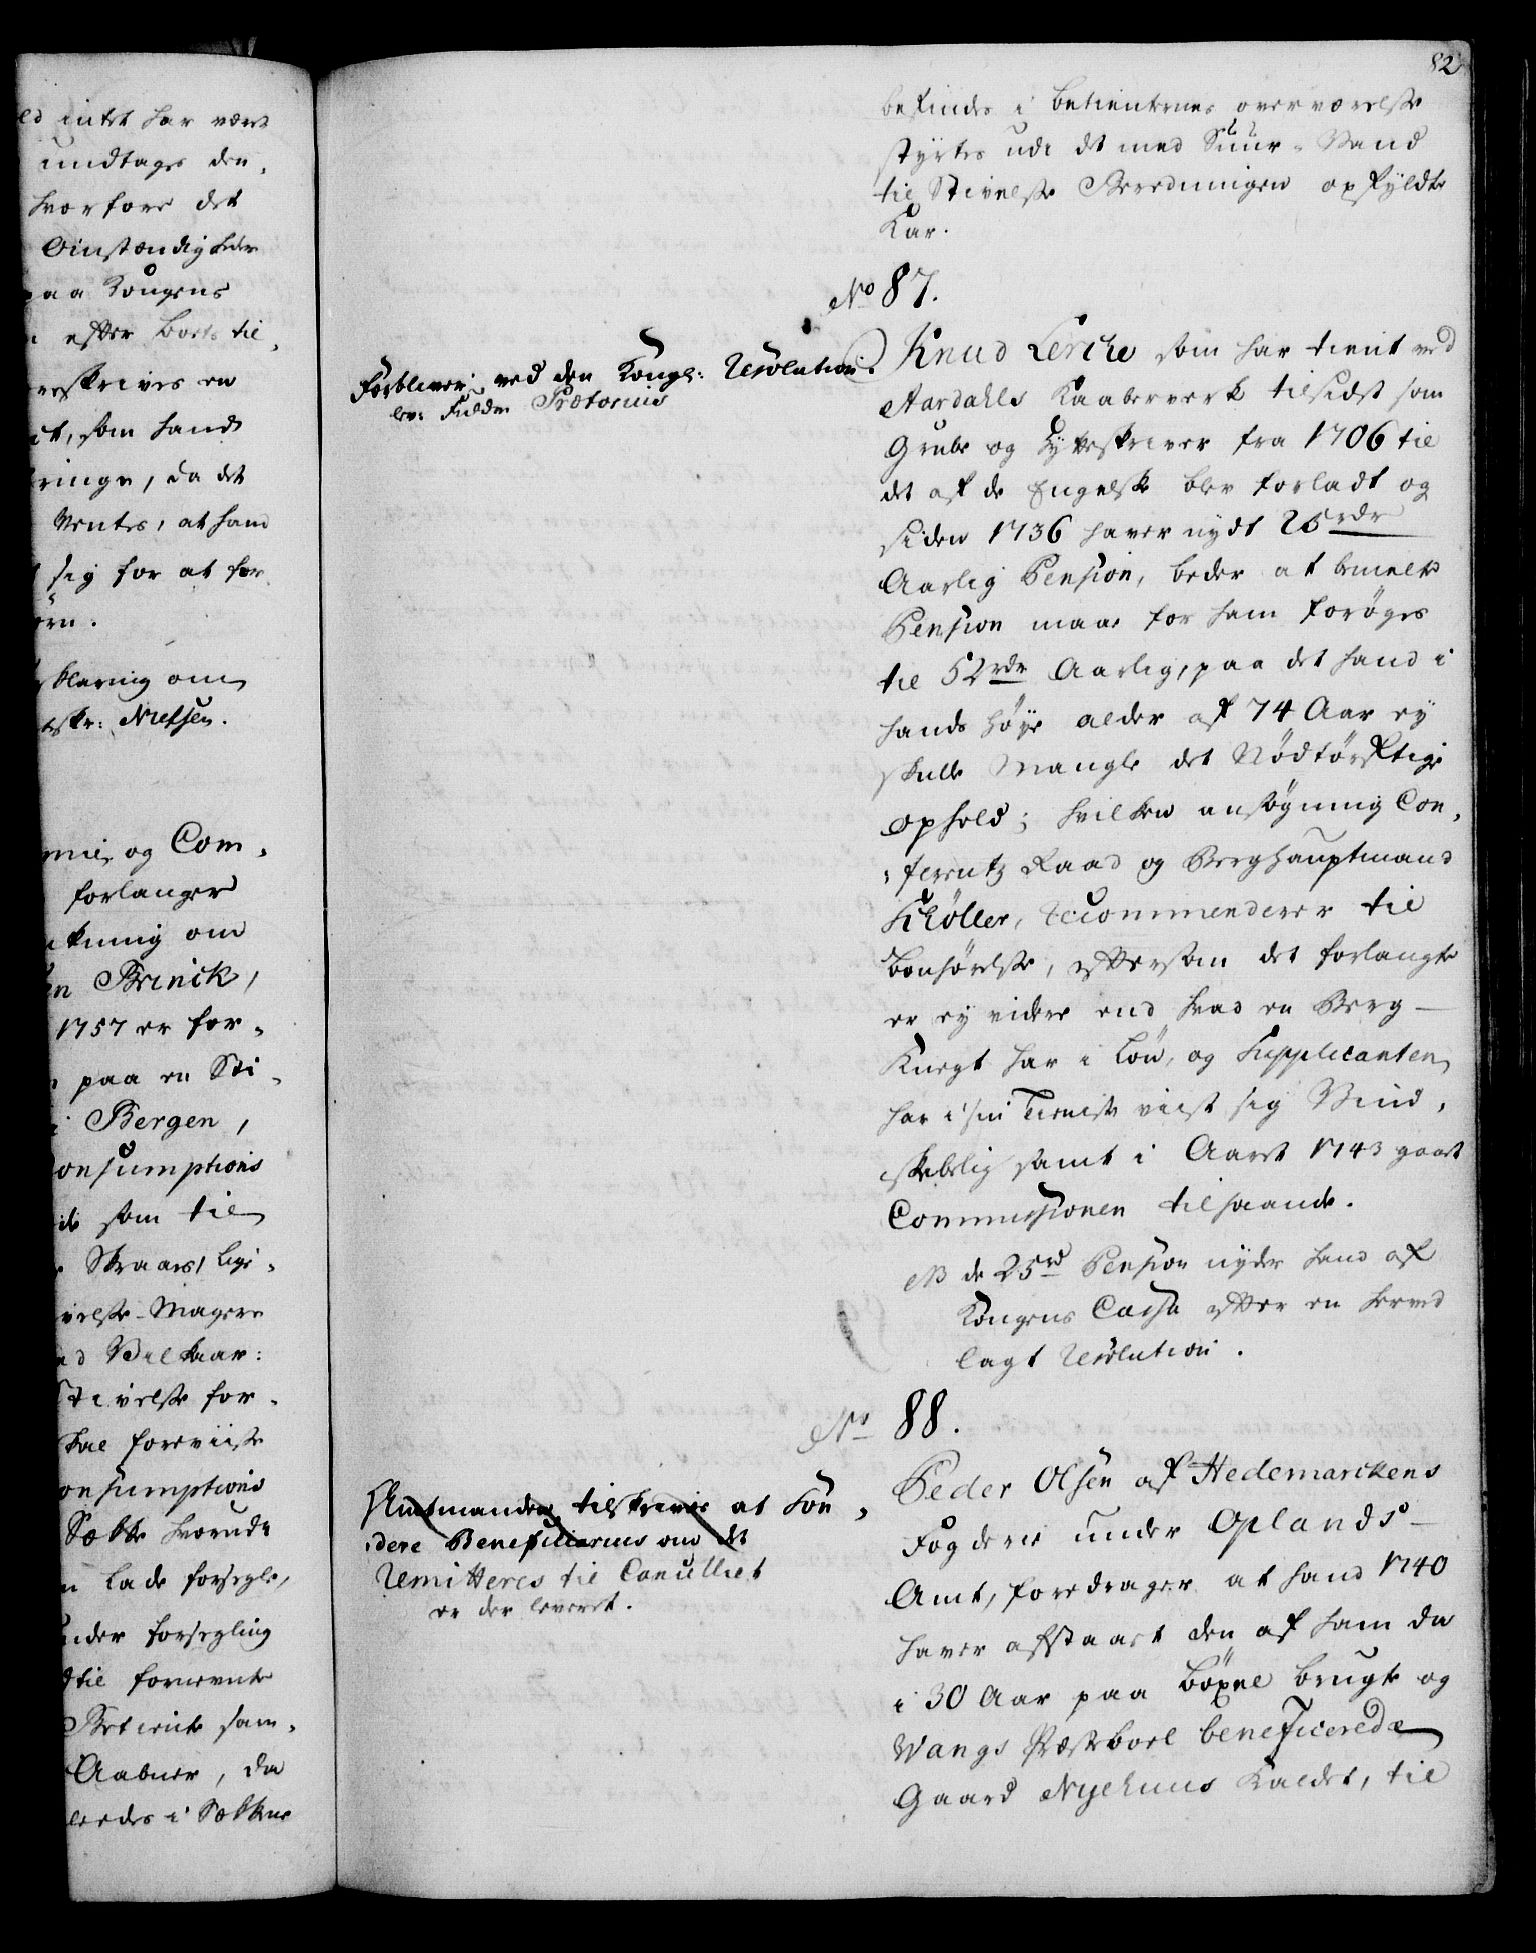 ld intet har være
undtages den,
hvorfore det
Omstændigheder
paa Kongens
efter Bortstil,
reskrives en
ict, som hand
ringe, da det
Ventes, at hand
sig for at for
ørn.
rklaring om
tskr: Nielsen.
mie, og Com,
forlanger
kning om
en Brinck,
1757 er for,
paa en Sti,
i Bergen,
onsumptions
de som til
Skraars, lige,
ivelse-Magere
ed Vilkaar:
Stivelse for,
kal foreviise
onsumptions
Sække hvorudi
n lade forsegle,
under forsegling
dtil fornevnte
Betiente sam,
Aabner, da
ledes i Sækkene
82
befindes i betienternes overværelse
styrtes udi det med Suur-Vand
til Stivelse Beredningen opfyldte
Kar.
No 87.
Forbliver ved den Kongl: Resolution.
lev: Fuldm Prætorius
Knud Lerche som har tient ved
Aardahls Kaaberverk tilsidst som
Grube og Hytteskriver fra 1706 til
det af de Engelske blev forladt og
siden 1736 haver nydt 25 rdr
Aarlig Pension, beder at bemelte
Pension maae for ham forøges
til 52 rdr Aarlig, paa det hand i
hands høye alder af 74 Aar ey
skulle Mangle det Nødtørftige
ophold; hvilken ansøgning Con,
,ferentz Raad og Berghauptmand
Schøller, recommenderer til
bønhørelse, eftersom det forlangte
er ey videre end hvad en Berg-
Knegt har i Løn, og Supplicanten
har i sin Tieneste viist sig Vind,
skibelig samt i Aaret 1743 gaaet
Commissionen tilhaande.
NB de 25 rd Pension nyder hand af
Kongens Cassa efter en herved
lagt Resolution.
No 88.
Amtmanden tilskrives at Son,
,dere Beneficiarius om det
Remitteres til Cancelliet
er der leveret.
Peder Olsen af Hedemarckens
Fogderie under Oplands-
Amt, foredrager at hand 1740
haver afstaaet den af ham da
i 30 Aar paa Bøxel brugte og
Vangs Præstebord beneficerede
Gaard Nyehuus Kaldet, til